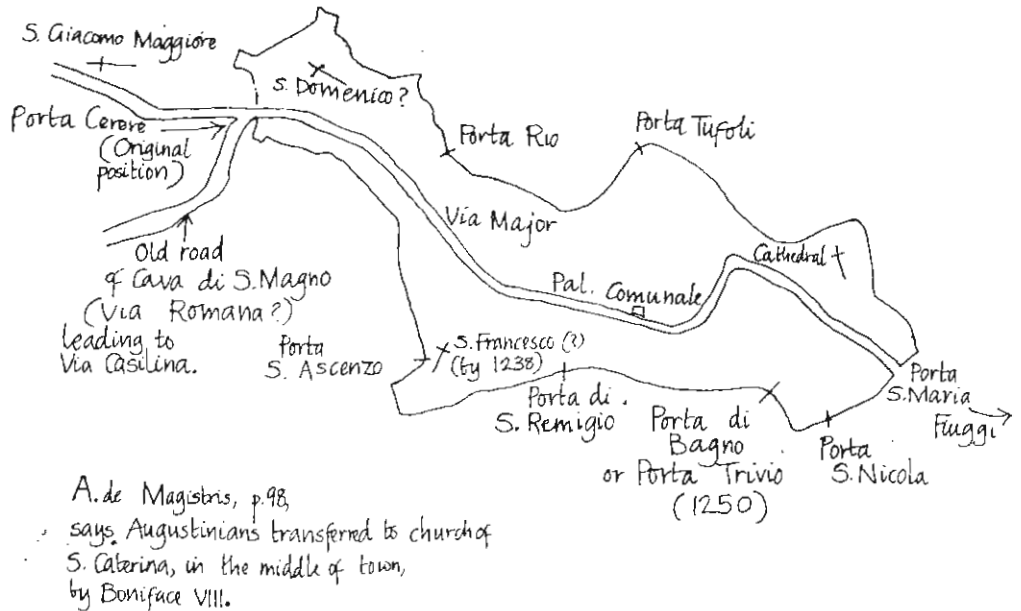 S. Giacomo Maggiore
S. Domenico?
Porta Cerere
(Original
position)
Porta Rio
Porta Tufoli
Via Major
Old road
of Cava di S. Magno
(Via Romana?)
leading to
Via Casilina.
Cathedral
Pal. Comunale
Porta
S. Ascenzo
S. Francesco (?)
(by 1238)
Porta di
S. Remigio
Porta di
Bagno
or Porta Trivio
(1250)
Porta
S. Nicola
Porta
S. Maria
Fiuggi
A. de Magistris, p. 98,
says Augustinians transferred to church of
S. Caterina, in the middle of town,
by Boniface VIII.